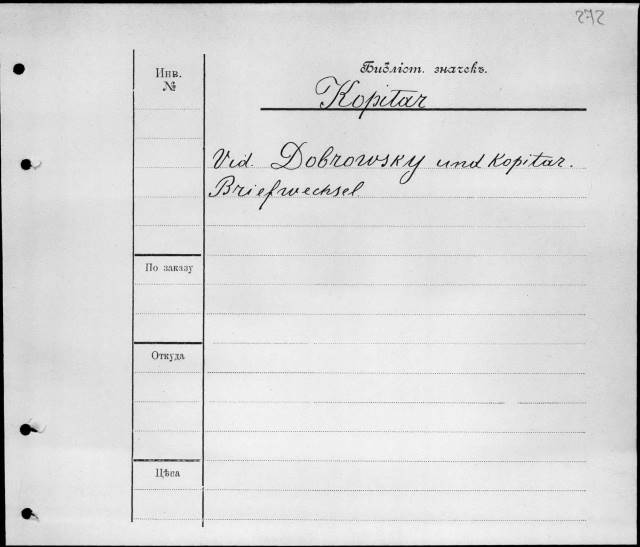 272
Инв.
№
Библіот. значекъ.
Kopitar
Vid. Dobrowsky und Kopitar.
Briefwechsel
По заказу
Откуда
Цѣна